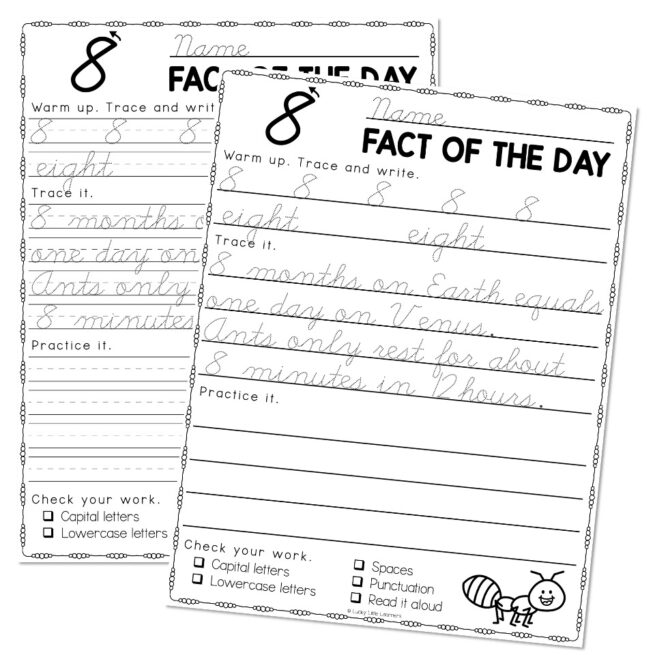 8
Name
FACT OF THE DAY
Warm up. Trace and writ
8 8 8
eight
Trace it.
8 months o
one day on
Ants only
8 minutes
Practice it.
Check your work.
Capital letters
Lowercase letters
8
Name
FACT OF THE DAY
Warm up. Trace and write.
8 8 8 8 8
eight eight
Trace it.
8 months on Earth equals
one day on Venus.
Ants only rest for about
8 minutes in 12 hours.
Practice it.
Check your work.
Capital letters
Lowercase letters
Spaces
Punctuation
Read it aloud
© Lucky Little Learners